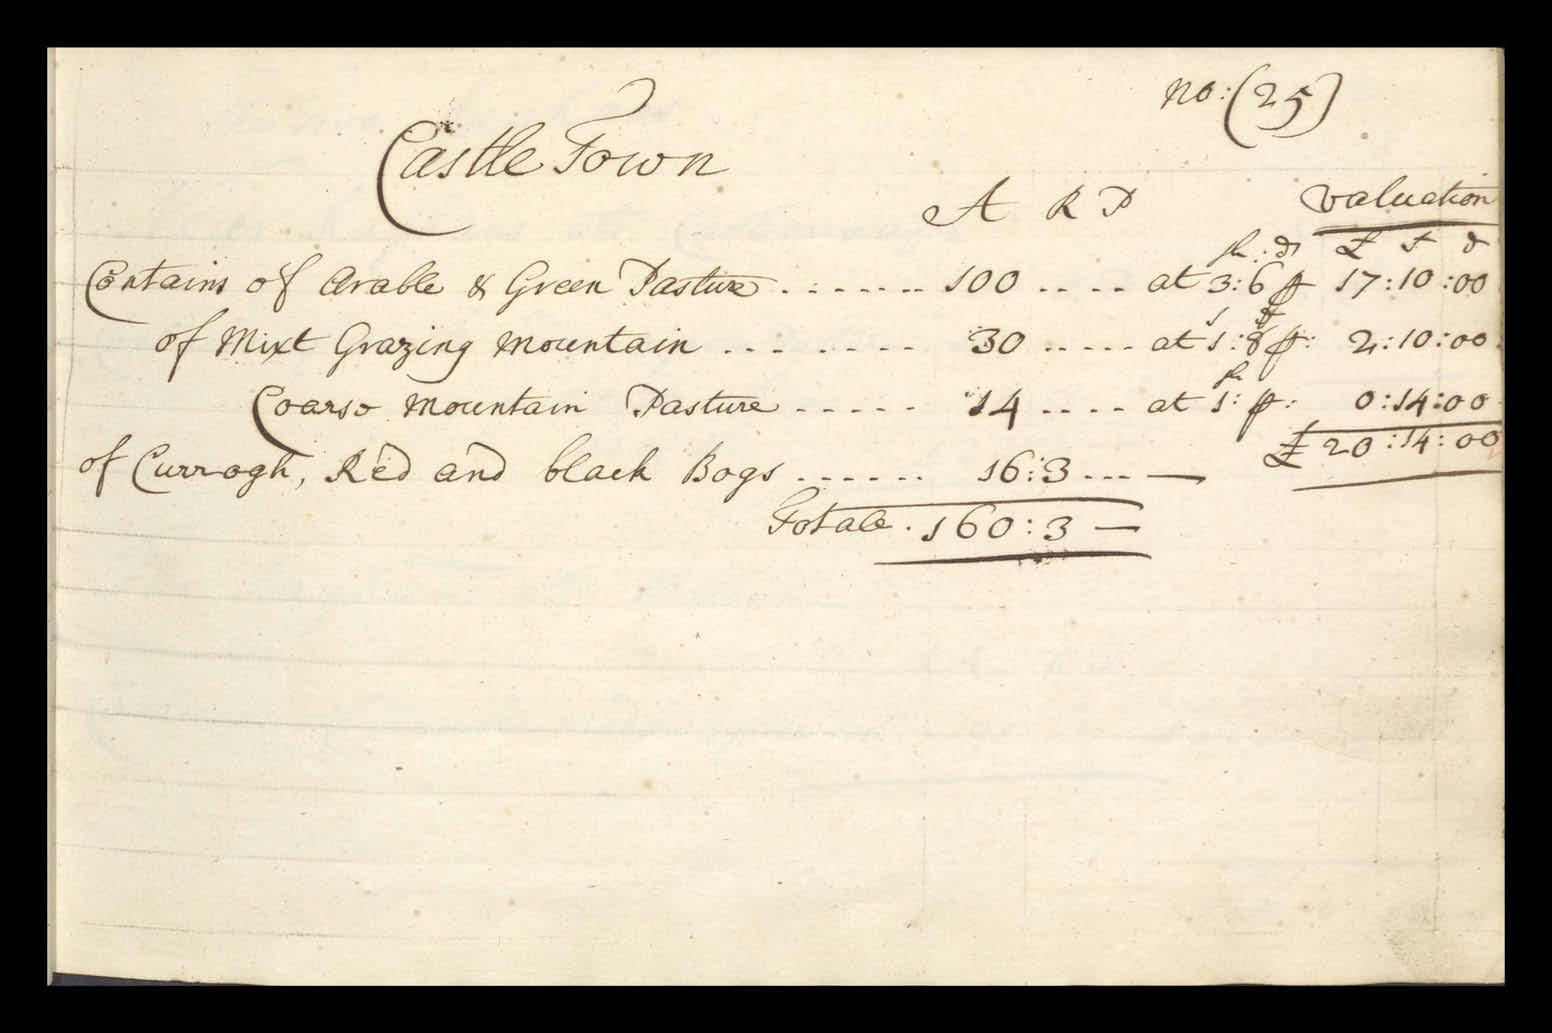 No: (25)
Castle Town
A R P Valuation
sh: D £ s d
Contains of Arable & Green Pasture ....... 100 .... at 3:6 p 17:10:00
s d
of Mixt Grazing Mountain ........ 30 ..... at 1:8 p: 2:10:00
sh
Coarse Mountain Pasture ..... 14 .... at 1: p: 0:14:00
£ 20:14:00
of Curragh, Red and black Bogs ...... 16:3 ... —
Totale . 160:3 —